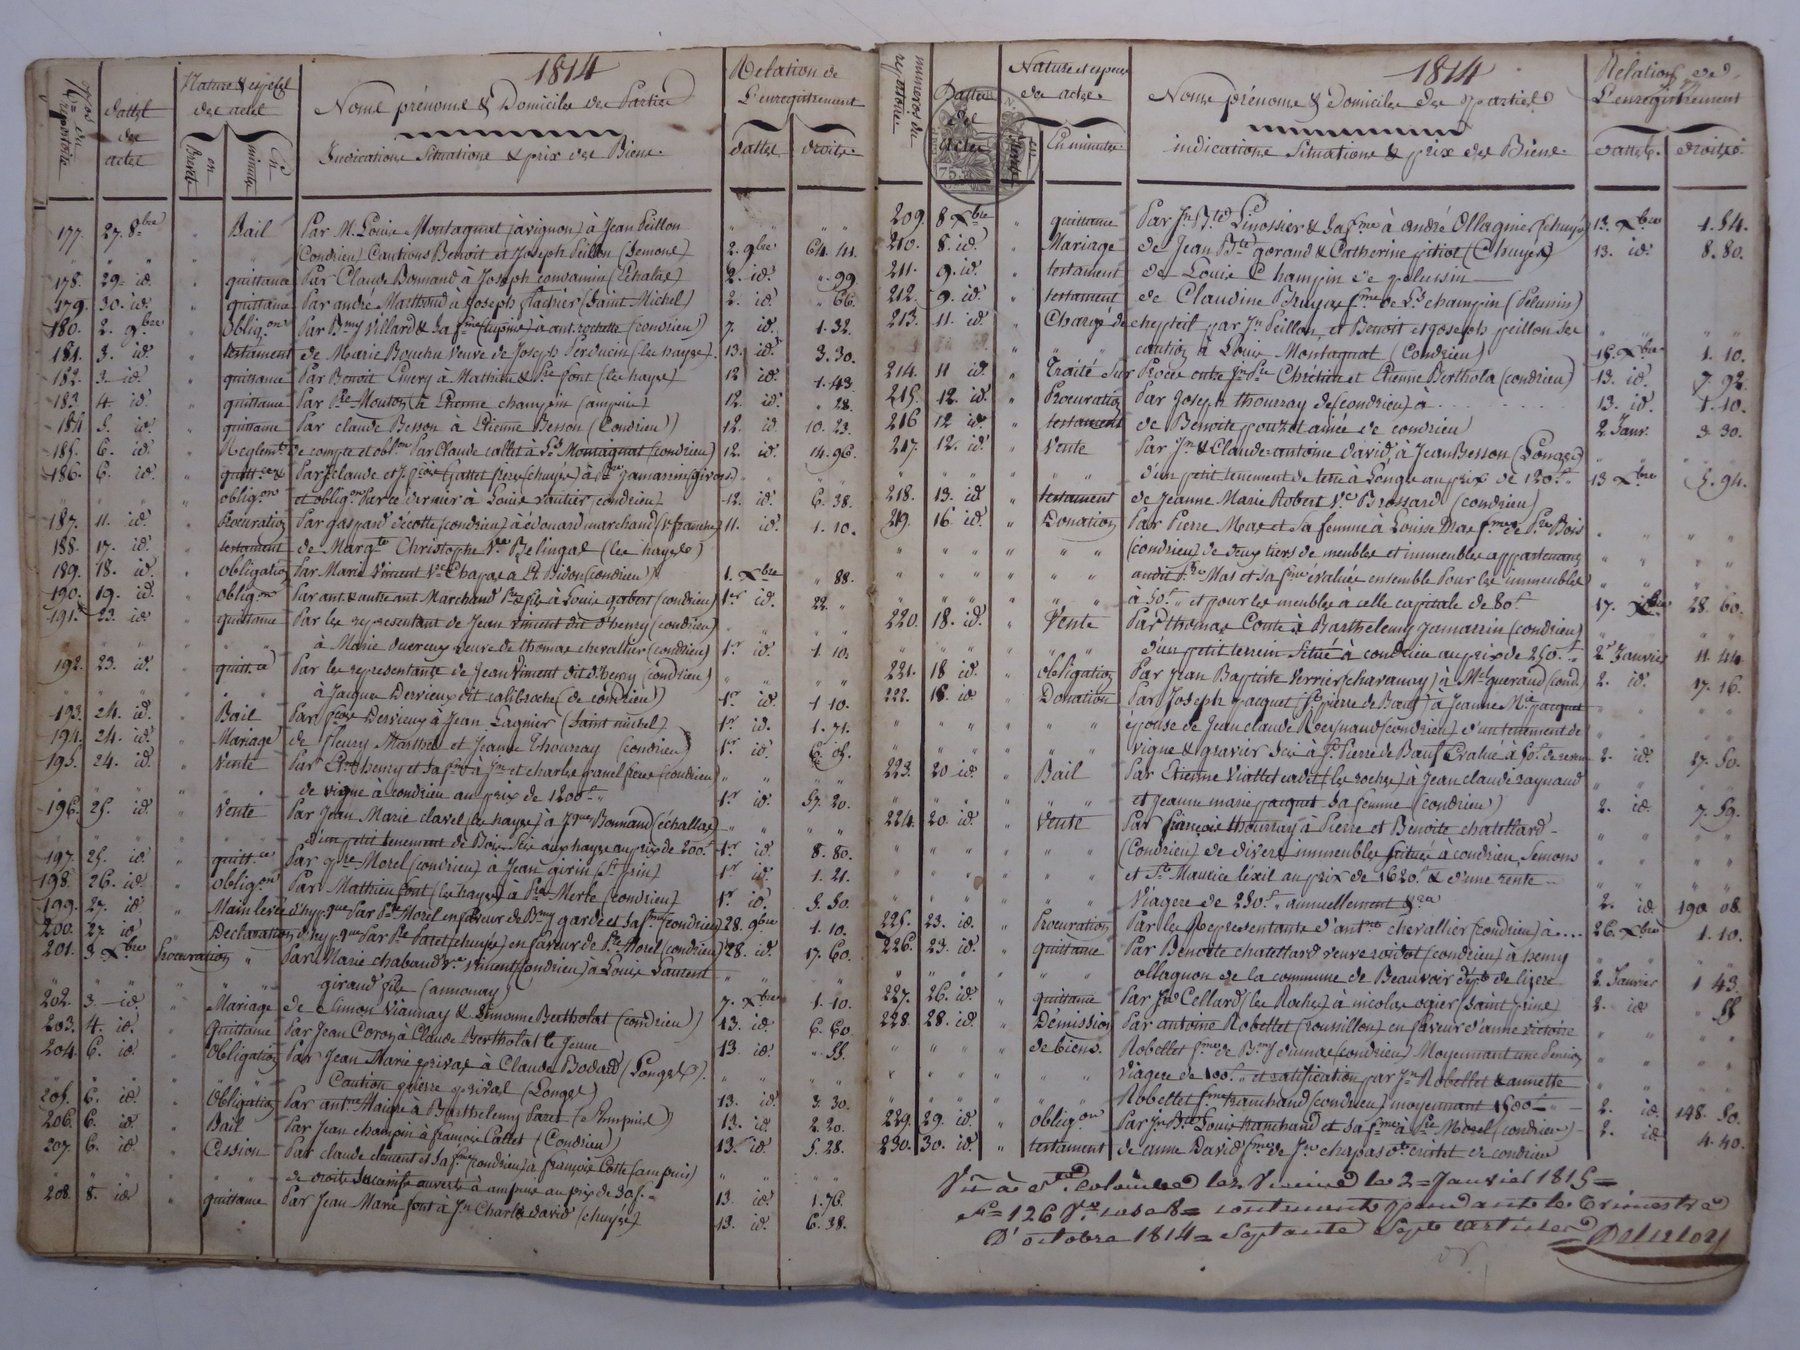 1814
Nos du répertoire
dattes des actes
Nature & espèce des actes
en Brevet
en minute
Noms prénoms & Domiciles des Parties
Indications Situations & prix des Biens.
Relation de L'enregistrement
dattes
droits.
177. 27. 8bre " Bail Par M. Louis Montagnat (avignon) à Jean Peillon " "
Condrieu) Cautions Benoit et Joseph Peillon (Semons) 2. 9bre 64. 44.
178. 29. id. " quittance Par Claude Bonnand à Joseph (Echalas) 2. id. " 99
179. 30. id. " quittance Par andré Marthoud à Joseph (Saint Michel) 2. id. " 66.
180. 2. 9bre " Oblig.on Par B.my Villard & sa f.me à ant. rochette (condrieu) 7. id. 1. 32.
181. 3. id. " testament de Marie Bouchu veuve de Joseph (les hayes) 13. id. 3. 30.
182. 3. id. " quittance Par Benoit Emery à Mathieu & P.re font (les hayes) 12 id. 1. 43
183. 4. id. " quittance Par P.re Mouton à Etienne champin (ampuis) 12. id. " 28.
184 5. id. " quittance Par claude Besson à Etienne Besson (Condrieu) 12. id. 10. 23.
185. 6. id. " Reglem.t de compte et obl.on Par Claude callet à L.s Montagnat (condrieu) 12. id. 14. 96.
186. 6. id. " quitt.ce & Par claude et f.çois frères (chuyés) à (givors) " "
obligon et oblig.on Par ce dernier à Louis vautier (condrieu) 12. id. 6. 38.
187. 11. id. " Procuration Par gaspard décotte (condrieu) à édouard marchand 11. id. 1. 10.
188. 17. id. " testament de Marg.te Christophe V.ve Belingat (les hayes)
189. 18. id. " obligation Par Marie Vincent V.ve Chapas à Bidon (condrieu) 1. Xbre " 88.
190. 19. id. " oblig.on Par ant. & autre ant Marchand Père & fils à Louis (condrieu) 1er id. 22. "
191. 23. id " quittance Par les representant de Jean Vincent dit d'henry (condrieu)
à Marie veuve de thomas chevallier (condrieu) 1er id 1. 10.
192. 23. id. " quitt.ce Par les representants de Jean Vincent dit d'henry (condrieu)
à Jacques Dervieux dit calibroche (de condrieu) 1er id. 1 10.
193. 24. id. " Bail Par f.çois Dervieux à Jean Lagnier (Saint michel) 1er id. 1. 71.
194. 24. id. " Mariage de fleury Marthe et Jeanne Thourray (condrieu) 1er id 6. 05.
195. 24. id. " Vente Par henry et sa f.me à J.n et charles granel freres (condrieu)
de vigne à condrieu au prix de 1200f " 1er id. 57. 20.
196. 25. id. " Vente Par Jean Marie clavel (les hayes) à J.ques Bonnand (échallas)
d'un petit tenement de Bois Sis aux hayes au prix de 200f 1er id. 8. 80.
197. 25. id. " quitt.ce Par p.re Morel (condrieu) à Jean girin (St prim) 1er id. 1. 21.
198. 26. id. " oblig.on Par Mathieu font (les hayes) à P.re Merle (condrieu) 1er id. 5. 50.
199. 27. id " Main levée d'hyp.que Par P.re Morel en faveur de B.my garde et sa f.me (condrieu) 28. 9bre 1. 10.
200. 27 id " Declaration d'hyp.que Par P.re Paret (chuyés) en faveur de P.re Morel (condrieu) 28. id. 17. 60.
201. 3 Xbre Procuration " Par Marie chabaud V.ve Vincent (condrieu) à Louis Laurent
giraud fils (annonay) 7. Xbre 1. 10.
202. 3. id " Mariage de Simon Viannay & Simonne Bertholat (condrieu) 13. id. 6. 60.
203. 4. id. " Quittance Par Jean Coron à Claude Bertholat le Jeune 13 id. " 55.
204. 6. id " Obligation Par Jean Marie privas à Claude Bodard (Longes).
Caution pierre prival (Longes) 13. id. 3. 30.
205. 6. id. " Obligation Par ant.ne Maigre à Barthelemy Paret (d'Ampuis) 13. id 2. 20.
206. 6. id " Bail Par Jean champin à françois Callet (Condrieu) 13. id. 5. 28.
207. 6. id " Cession Par claude clement et sa f.me (condrieu) à françois Coste (ampuis)
de droits Successifs ouverts à ampuis au prix de 30f. = 13 id. 1. 76.
208. 8. id " quittance Par Jean Marie font à J.n Charles david (chuyés) 13. id. 6. 38.
1814
numeros du repertoire
Dattes des Actes
Nature et espèce des actes.
En minutes
Noms prénoms & Domiciles des parties
indications Situations & prix des Biens.
Relations de L'enregistrement
dattes.
droits.
209. 8 Xbre " quittance Par J.n B.te Linossier & sa f.me à andré Ollagnier (chuyés) 13. Xbre 1. 54.
210. 8. id. " Mariage de Jean B.te gorand & Catherine pitiot (Chuyés) 13. id. 8. 80.
211. 9. id. " testament de Louis Champin de pelussin
212. 9. id. " testament de Claudine Bruyas f.me de L.s champin (Pelussin)
213. 11. id " Charge de chepteil par J.n Peillon, et Benoit et joseph peillon ses
caution à Louis Montagnat (Condrieu) 16. Xbre 1. 10.
214. 11 id " Traité Sur Procès entre J.n P.re Chrétien et Etienne Berthola (condrieu) 13. id. 7. 92.
215. 12. id. " Procuration Par Joseph thourray de (condrieu) a . . . . . . 13. id. 1. 10.
216 12 id " testament de Benoite pouzot ainée de condrieu 2. Janr. 3 30.
217. 12. id " Vente Par J.n & Claude-antoine david, à Jean Besson (Longes)
d'un petit tenement de terre à Longes au prix de 120f. " 13 Xbre 5. 94.
218. 13. id " testament de Jeanne Marie Robert V.ve Brossard (condrieu)
219. 16. id " Donation Par Pierre Mas et sa femme à Louise Mas f.me de P.re Bois
(condrieu) de deux tiers de meubles et immeubles appartenans
audit P.re Mas et sa f.me évalués ensemble Pour les immeubles
à 50f. " et pour les meubles à celle capitale de 80f 17. Xbre 28. 60.
220. 18. id. " Vente Par thomas Conte à Barthelemy Jamarrin (condrieu)
d'un petit terrein Situé à condrieu au prix de 250f. " 2 Janvier 11. 44
221. 18 id. " Obligation Par Jean Baptiste Verrier (chavanay) à M.e queraud (cond.) 2. id. 17. 16.
222. 18. id " Donation Par Joseph Jacquet (St pierre de Bœuf) à Jeanne M.ie Jacquet
épouse de Jean claude Reynaud (condrieu) d'un tenement de
vigne & gravier Sis à St Pierre de Bœuf Evalué à 50f. de revenu 2. id. 17. 50.
223. 20 id. " Bail Par Etienne Viallet cadet (les roches) à Jean claude raynaud
et jeanne marie jacquet sa femme (condrieu) 2. id 7. 59.
224. 20. id. " Vente Par françois thourray à Pierre et Benoite chatellard
(Condrieu) de divers immeubles situés à condrieu, Semons
et St Maurice l'exil au prix de 1650f & d'une rente
Viagere de 250f. annuellement & ca 2. id 190 08.
225. 23. id " Procuration Par les Representants d'ant.ne chevallier (condrieu) à.... 26. Xbre 1. 10.
226. 23. id " quittance Par Benoite chatellard veuve (condrieu) à henry
ollagnon de la commune de Beauvoir dép.t de lizere 2. Janvier 1 43.
227. 26. id " quittance Par Cellard (les Roches) à nicolas ogier (Saint prim) 2. id " 55
228. 28. id. " Démission Par antoine Robellet (roussillon) en faveur d'anne victoire
de biens. Robellet f.me de B.my (condrieu) Moyennant une Pension
Viagere de 100f. " et ratification par J.n Robellet & annette
Robellet f.me tranchand (condrieu) moyennant 1500f " 2. id. 148. 50.
229. 29. id. " oblig.on Par J.n B.te Louis tranchand et sa f.me à P.re Morel (condrieu) 2. id 4. 40.
230. 30. id. " testament de anne David f.me de J.n chapas de condrieu
Vu à Ste Colombe les Vienne le 2 = Janvier 1815 =
N.o 126 V.o case 8 = contenant pendant le trimestre
D'octobre 1814 = Septante Sept articles